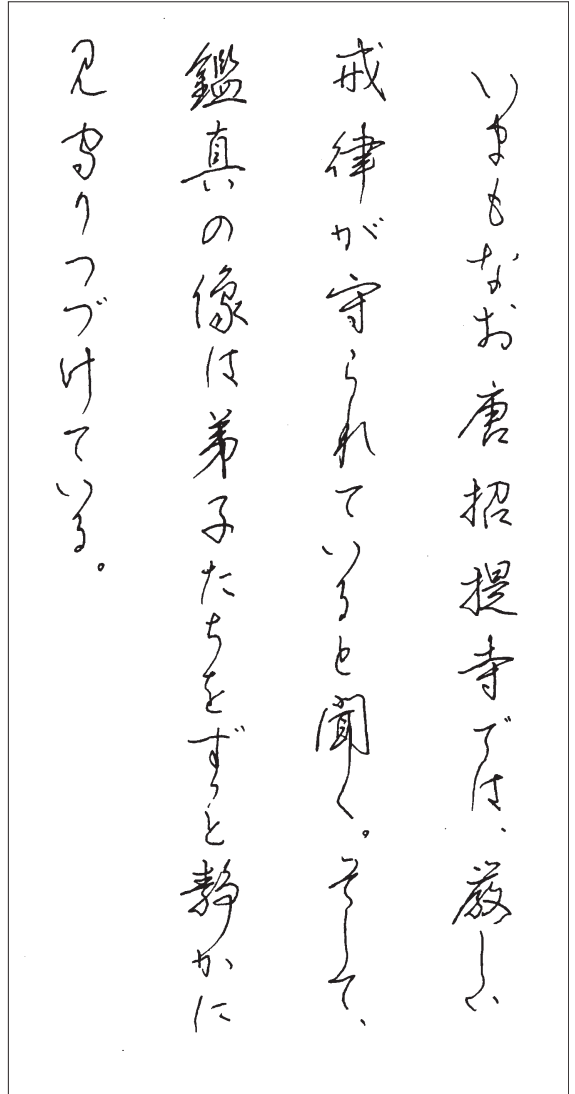 いまもなお唐招提寺では、厳しい
戒律が守られていると聞く。そして、
鑑真の像は弟子たちをずっと静かに
見守りつづけている。